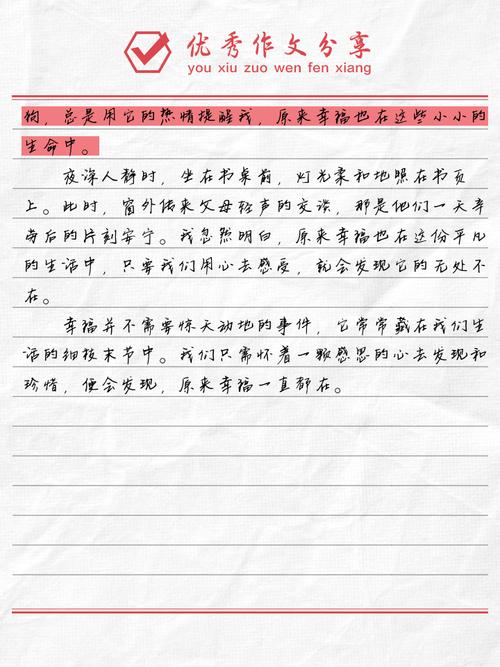 优秀作文分享
you xiu zuo wen fen xiang
狗，总是用它的热情提醒我，原来幸福也在这些小小的
生命中。
夜深人静时，坐在书桌前，灯光柔和地照在书页
上。此时，窗外传来父母轻声的交谈，那是他们一天辛
劳后的片刻安宁。我忽然明白，原来幸福也在这份平凡
的生活中，只要我们用心去感受，就会发现它的无处不
在。
幸福并不需要惊天动地的事件，它常常藏在我们生
活的细枝末节中。我们只需怀着一颗感恩的心去发现和
珍惜，便会发现，原来幸福一直都在。